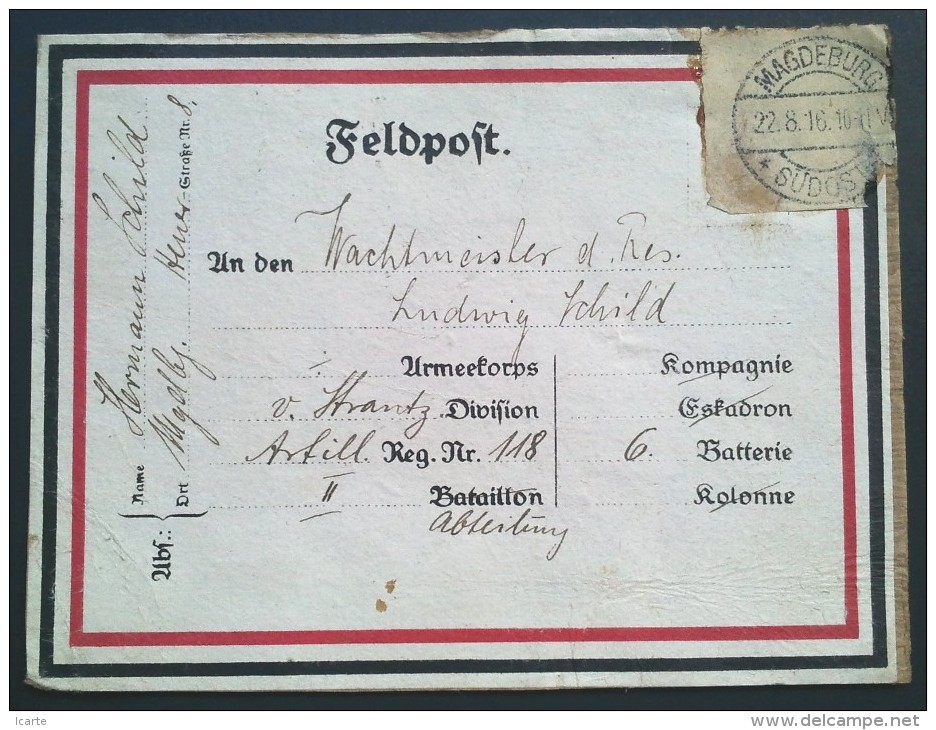 Feldpost.
MAGDEBURG
22.8.16. 10-11 V
* SÜDOST
An den Wachtmeister d. Res.
Ludwig Schild
Armeekorps
v. Strantz Division
Artill. Reg. Nr. 118
II Bataillon
Abteilung
Kompagnie
Eskadron
6. Batterie
Kolonne
Abs.:
Name Hermann Schild
Ort Mgdbg. -Straße Nr. 8.
Icarte
delcampe.net